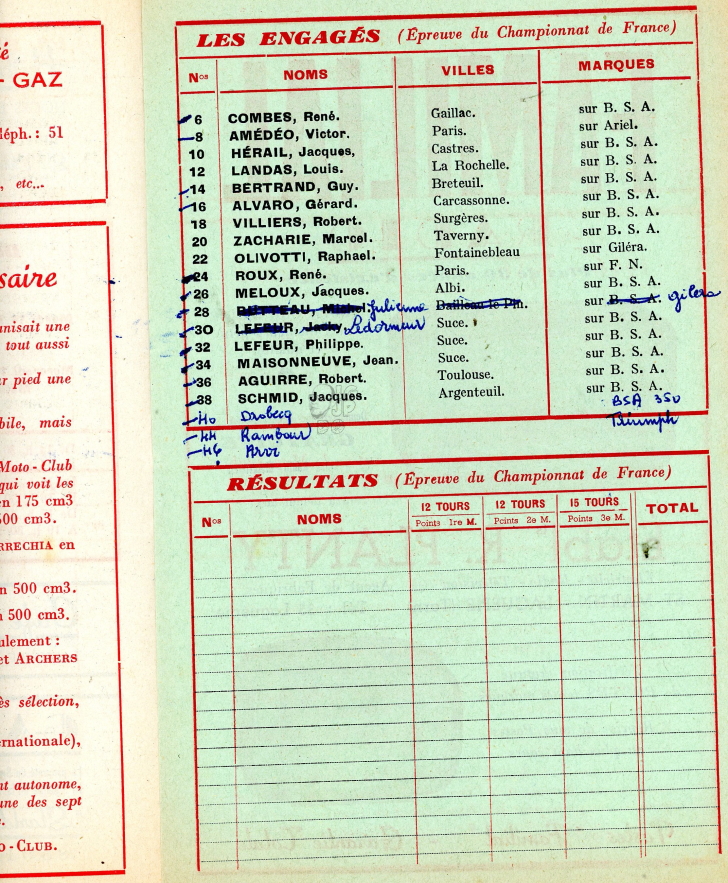 té
- GAZ
léph. : 51
, etc...
saire
anisait une
tout aussi
ur pied une
bile, mais
Moto - Club
qui voit les
en 175 cm3
500 cm3.
RRECHIA en
n 500 cm3.
n 500 cm3.
ulement :
et ARCHERS
ès sélection,
ernationale),
nt autonome,
une des sept
o - CLUB.
LES ENGAGÉS (Épreuve du Championnat de France)
Nos NOMS VILLES MARQUES
6 COMBES, René. Gaillac. sur B. S. A.
8 AMÉDÉO, Victor. Paris. sur Ariel.
10 HÉRAIL, Jacques, Castres. sur B. S. A.
12 LANDAS, Louis. La Rochelle. sur B. S. A.
14 BERTRAND, Guy. Breteuil. sur B. S. A.
16 ALVARO, Gérard. Carcassonne. sur B. S. A.
18 VILLIERS, Robert. Surgères. sur B. S. A.
20 ZACHARIE, Marcel. Taverny. sur B. S. A.
22 OLIVOTTI, Raphael. Fontainebleau sur Giléra.
24 ROUX, René. Paris. sur F. N.
26 MELOUX, Jacques. Albi. sur B. S. A.
28 Julienne sur B. S. A. gilera
30 LEFEUR, Jacky Ledormeur Suce. sur B. S. A.
32 LEFEUR, Philippe. Suce. sur B. S. A.
34 MAISONNEUVE, Jean. Suce. sur B. S. A.
36 AGUIRRE, Robert. Toulouse. sur B. S. A.
38 SCHMID, Jacques. Argenteuil. sur B. S. A.
40 Drobecq BSA 350
44 Rambour Triumph
46
RÉSULTATS (Épreuve du Championnat de France)
Nos NOMS 12 TOURS 12 TOURS 15 TOURS TOTAL
Points 1re M. Points 2e M. Points 3e M.